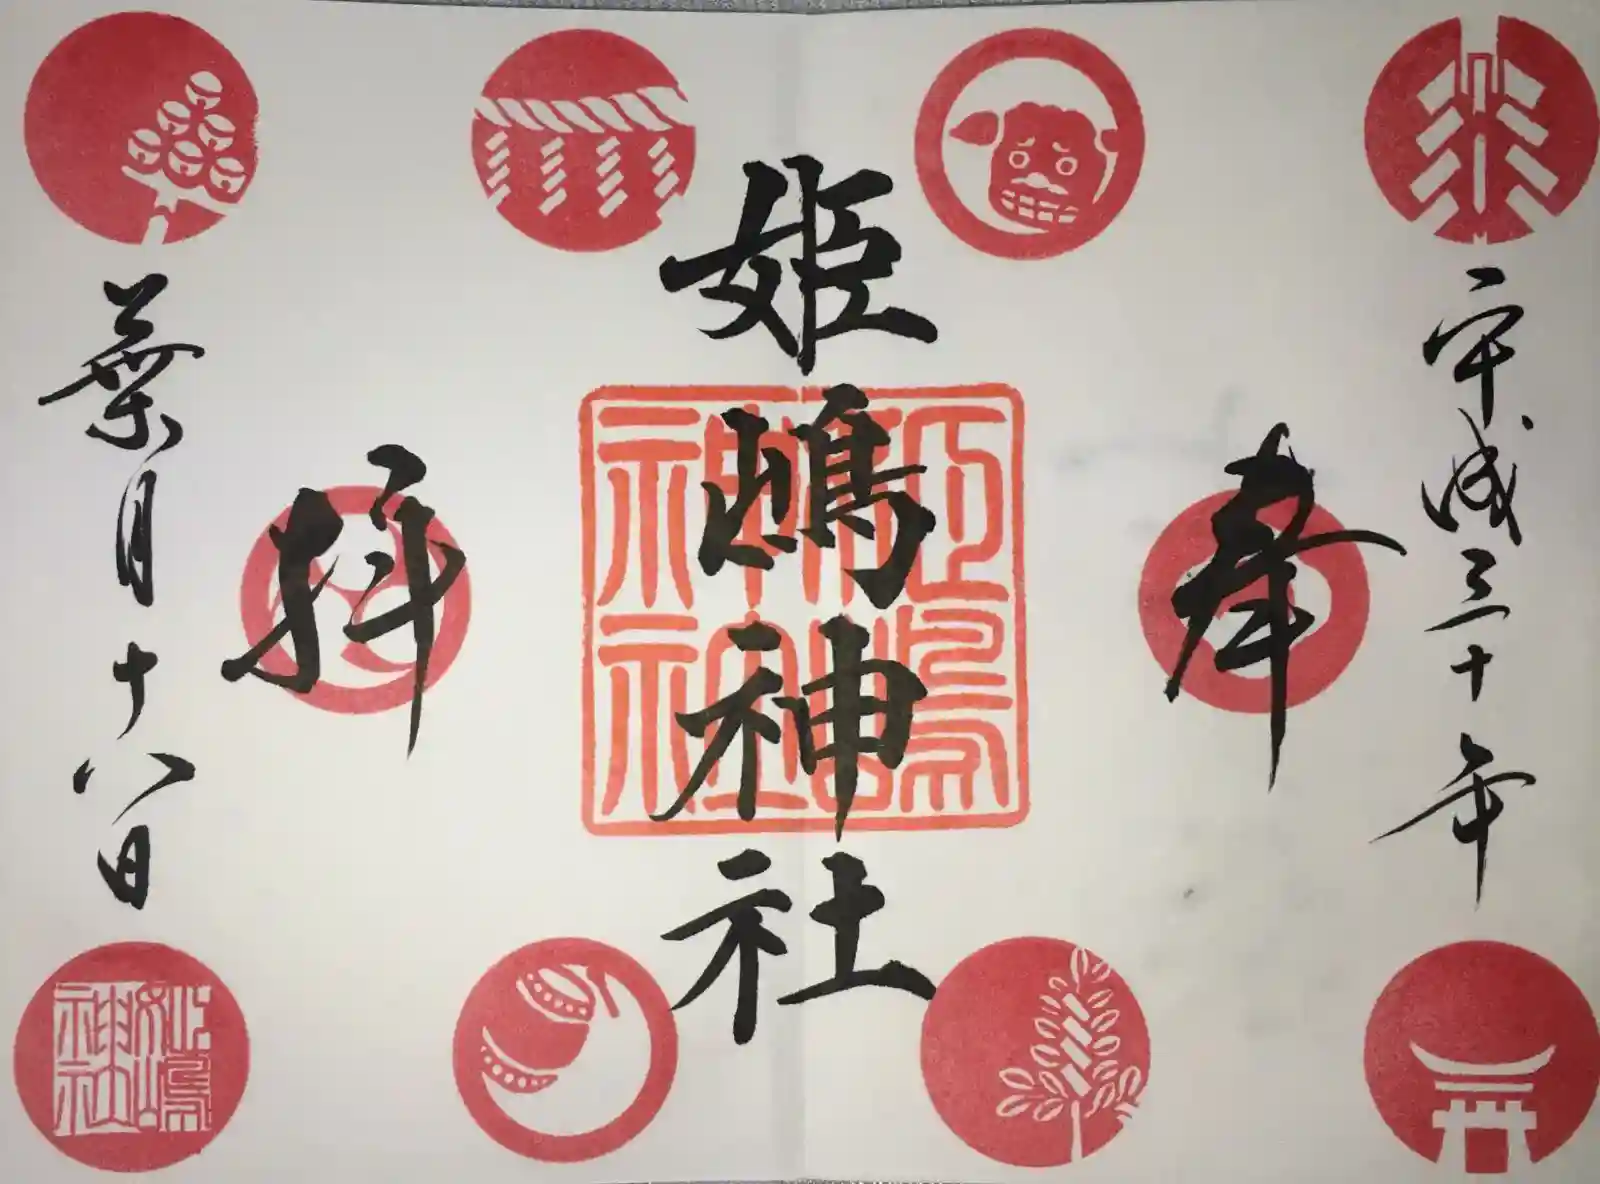 平成三十年
奉
姫嶋神社
拝
葉月十八日
姫嶋
神社
姫嶋
神社